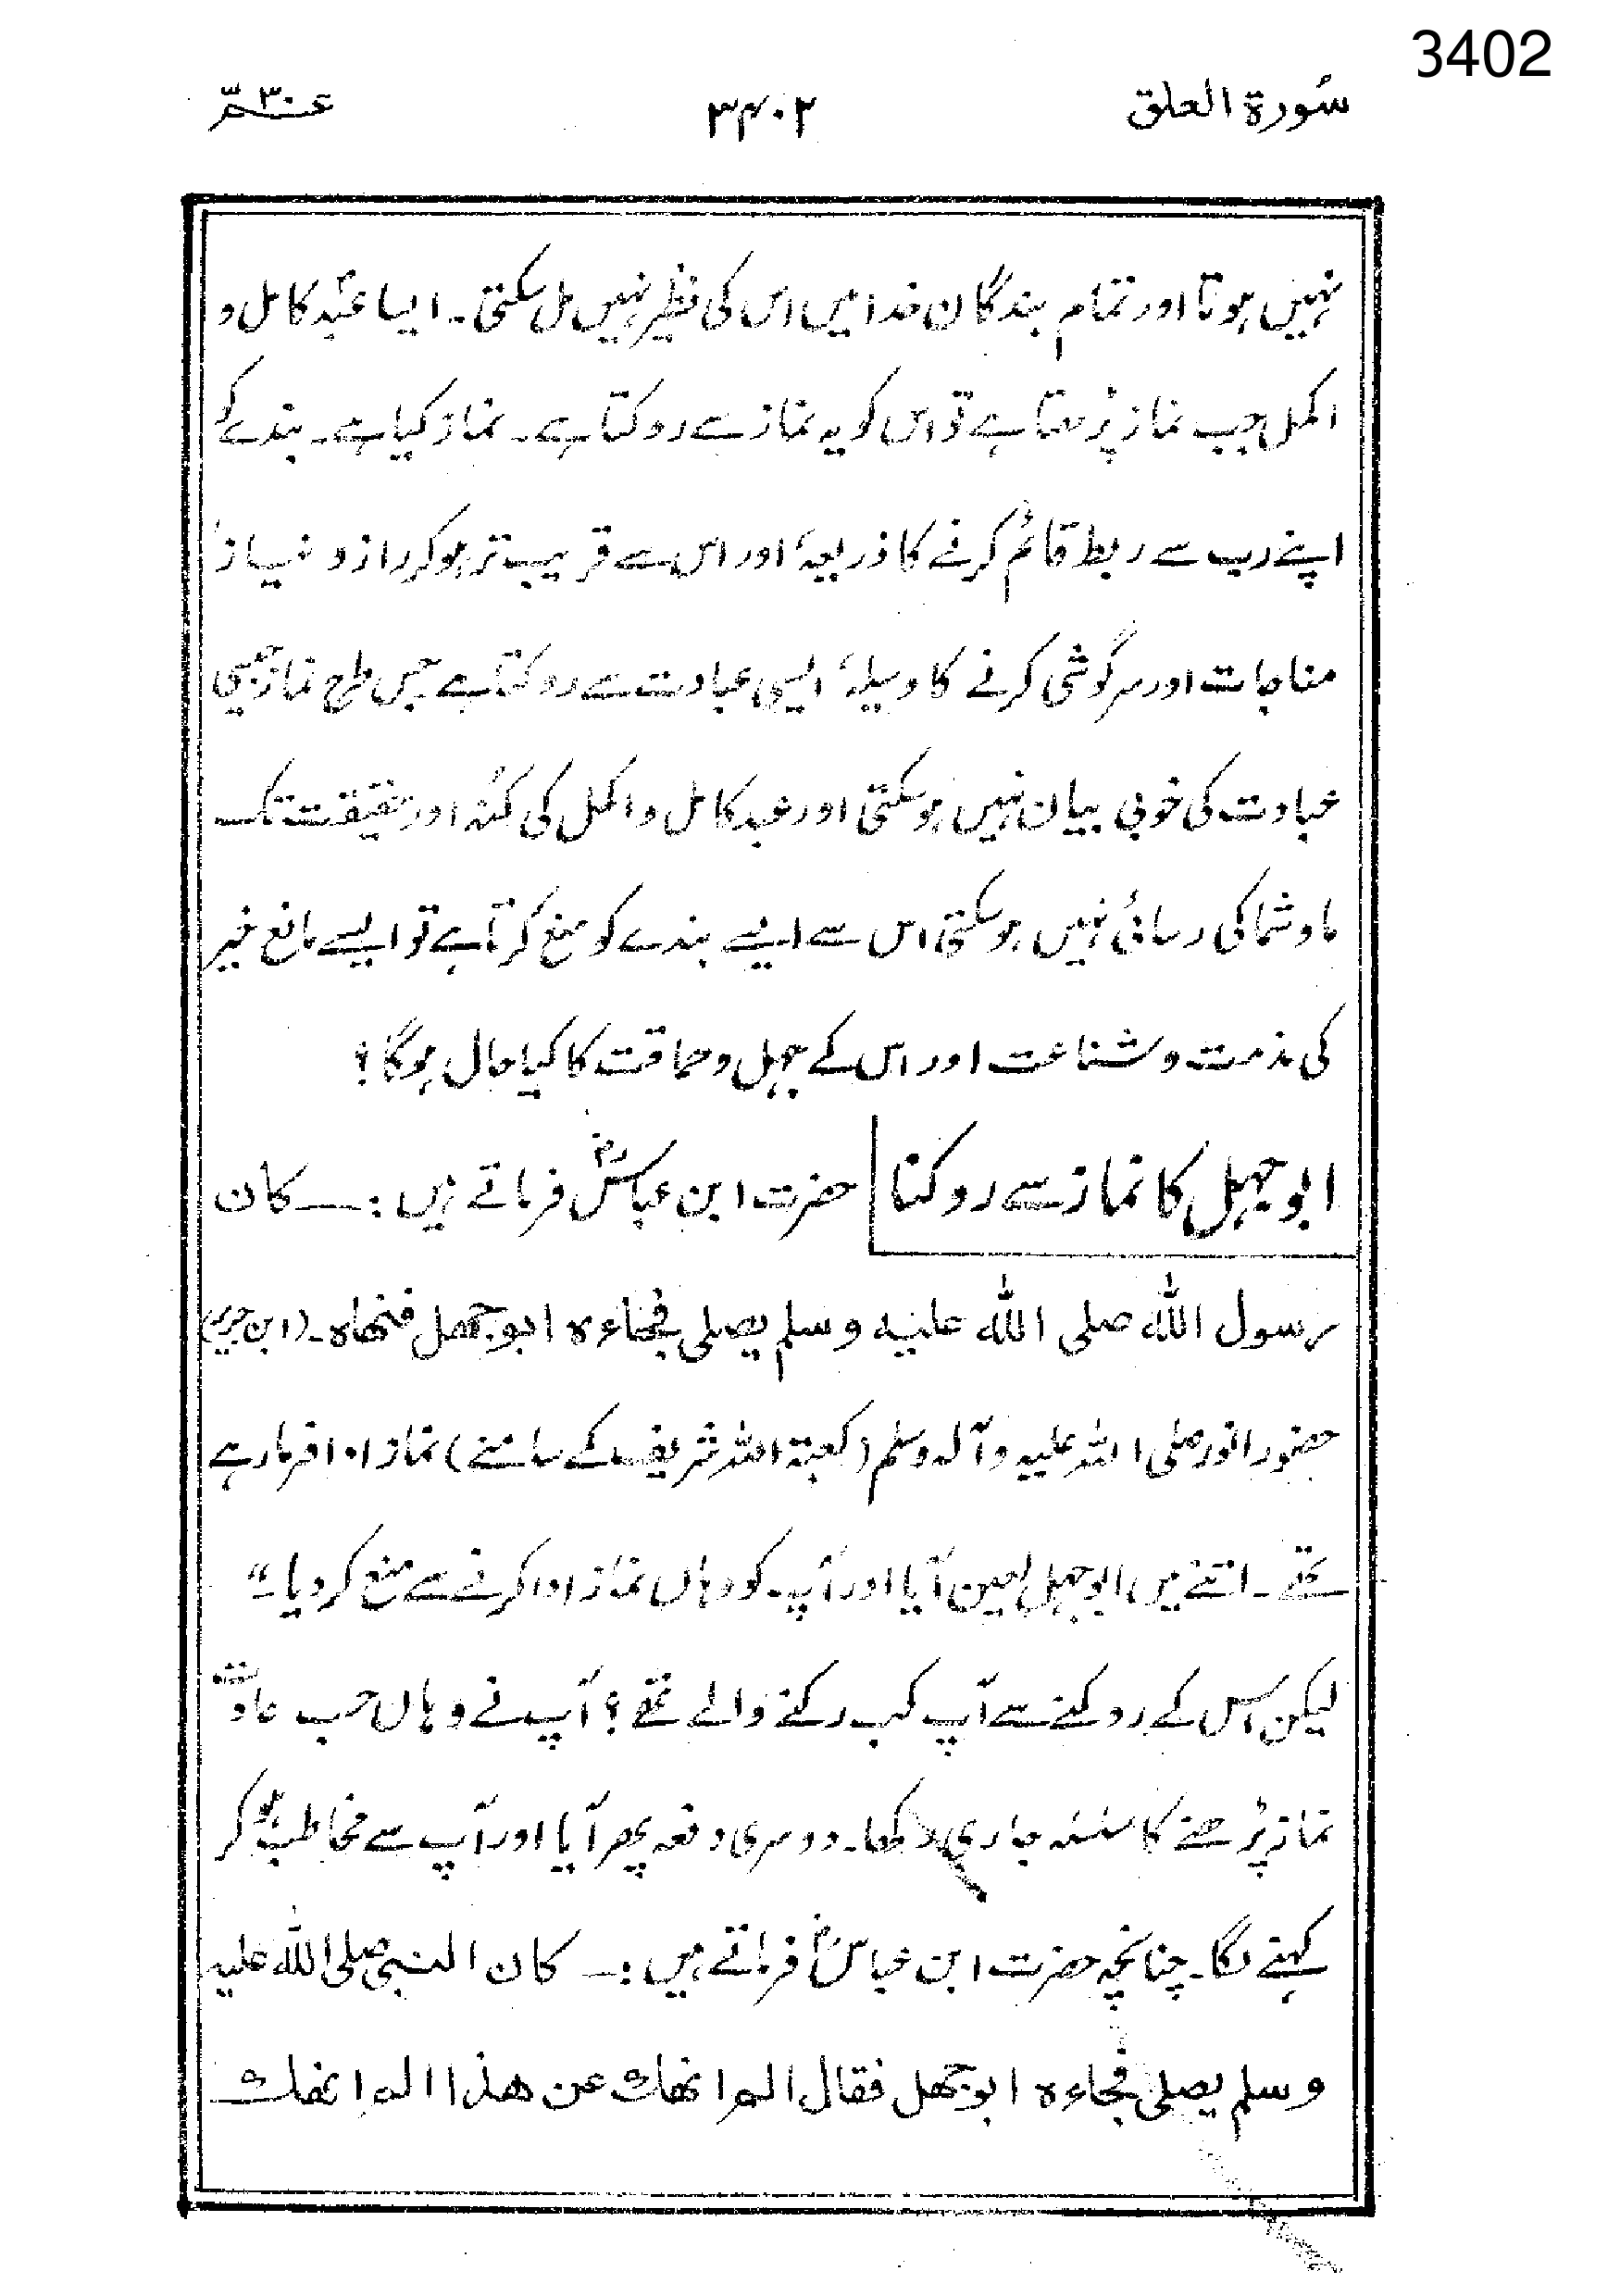 3402
سُورۃ العلق
۳۴۰۲
عَمَّ ۳۰
نہیں ہوتا اور تمام بندگان خدا میں اس کی نظیر نہیں مل سکتی۔ ایسا عبد کامل و
اکمل جب نماز پڑھتا ہے تو اس کو یہ نماز سے روکتا ہے۔ نماز کیا ہے۔ بندے کو
اپنے رب سے ربط قائم کرنے کا ذریعہ، اور اس سے قریب تر ہو کر راز و نیاز،
مناجات اور سرگوشی کرنے کا وسیلہ، ایسی عبادت سے روکتا ہے جس طرح نماز جیسی
عبادت کی خوبی بیان نہیں ہو سکتی اور عبد کامل و اکمل کی کُنہ اور حقیقت تک
ما و شما کی رسائی نہیں ہو سکتی اس سے ایسے بندے کو منع کرتا ہے تو ایسے مانع خیر
کی مذمت و شناعت اور اس کے جہل و حماقت کا کیا حال ہوگا؟
ابوجہل کا نماز سے روکنا
حضرت ابن عباسؓ فرماتے ہیں :۔ کان
رسول اللہ صلی اللہ علیہ وسلم یصلی فجاءہ ابوجھل فنھاہ۔ (ابن جریر)
حضور انور صلی اللہ علیہ وآلہ وسلم (کعبۃ اللہ شریف کے سامنے) نماز ادا فرما رہے
تھے۔ اتنے میں ابوجہل لعین آیا اور آپ کو وہاں نماز ادا کرنے سے منع کر دیا۔"
لیکن اس کے روکنے سے آپ کب رکنے والے تھے؟ آپ نے وہاں حسب عادت
نماز پڑھنے کا سلسلہ جاری رکھا۔ دوسری دفعہ پھر آیا اور آپ سے مخاطب ہو کر
کہنے لگا۔ چنانچہ حضرت ابن عباسؓ فرماتے ہیں :۔ کان النبی صلی اللہ علیہ
وسلم یصلی فجاءہ ابوجھل فقال الم انھک عن ھذا الم انھک